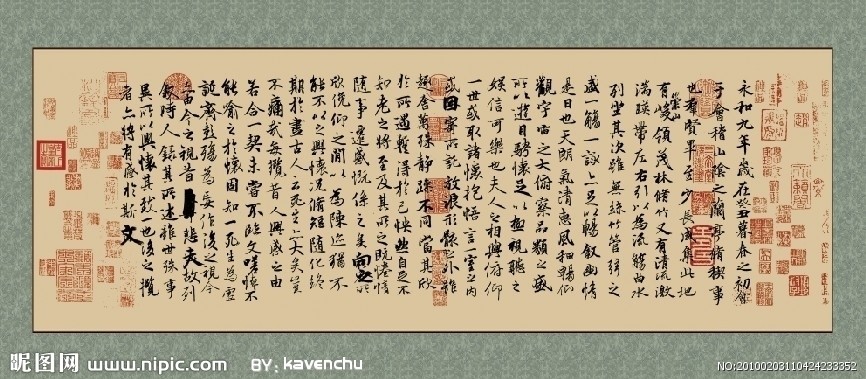 永和九年歲在癸丑暮春之初會
于會稽山陰之蘭亭脩稧事
也羣賢畢至少長咸集此地
有崇山峻領茂林脩竹又有清流激
湍暎帶左右引以為流觴曲水
列坐其次雖無絲竹管弦之
盛一觴一詠亦足以暢敘幽情
是日也天朗氣清惠風和暢仰
觀宇宙之大俯察品類之盛
所以遊目騁懷足以極視聽之
娛信可樂也夫人之相與俯仰
一世或取諸懷抱悟言一室之內
或因寄所託放浪形骸之外雖
趣舍萬殊靜躁不同當其欣
於所遇蹔得於己怏然自足不
知老之將至及其所之既惓情
隨事遷感慨係之矣向之所
欣俛仰之閒以為陳迹猶不
能不以之興懷況脩短隨化終
期於盡古人云死生亦大矣豈
不痛哉每攬昔人興感之由
若合一契未嘗不臨文嗟悼不
能喻之於懷固知一死生為虛
誕齊彭殤為妄作後之視今
亦由今之視昔悲夫故列
敘時人錄其所述雖世殊事
異所以興懷其致一也後之攬
者亦將有感於斯文
昵图网 www.nipic.com BY: kavenchu
NO:20100203110424233352